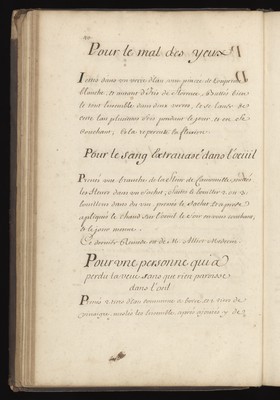 Pour le mal des yeux
Mettes dans un verre d'eau, une pinse de Couperose
blanche, et autant d'Iris de florence, battes bien
le tout ensemble dans deux verres, et se laver de
cette eau plusieurs fois pendant le jour, et en se
couchant, Cela
Pour le sang Extravasé dans l'oeüil
Prenés une branche de la fleur de mettés
les fleurs dans un sachet, faites le bouillir 2. ou 3
bouillons dans du vin, pressés le sachet Et apres
appliqués le chaud sur l'oeüil le soir en vous couchant,
et le jour mesme.
Ce dernier Remede est de Mr. Medecin.
Pour une personne qui a
perdu la veüe sans que rien paroisse
dans l'oeil
Prenés 2 tiers d'eau commune a boire, et 2 tiers de
vinaigre, meslés les ensemble, apres ajoutés y de